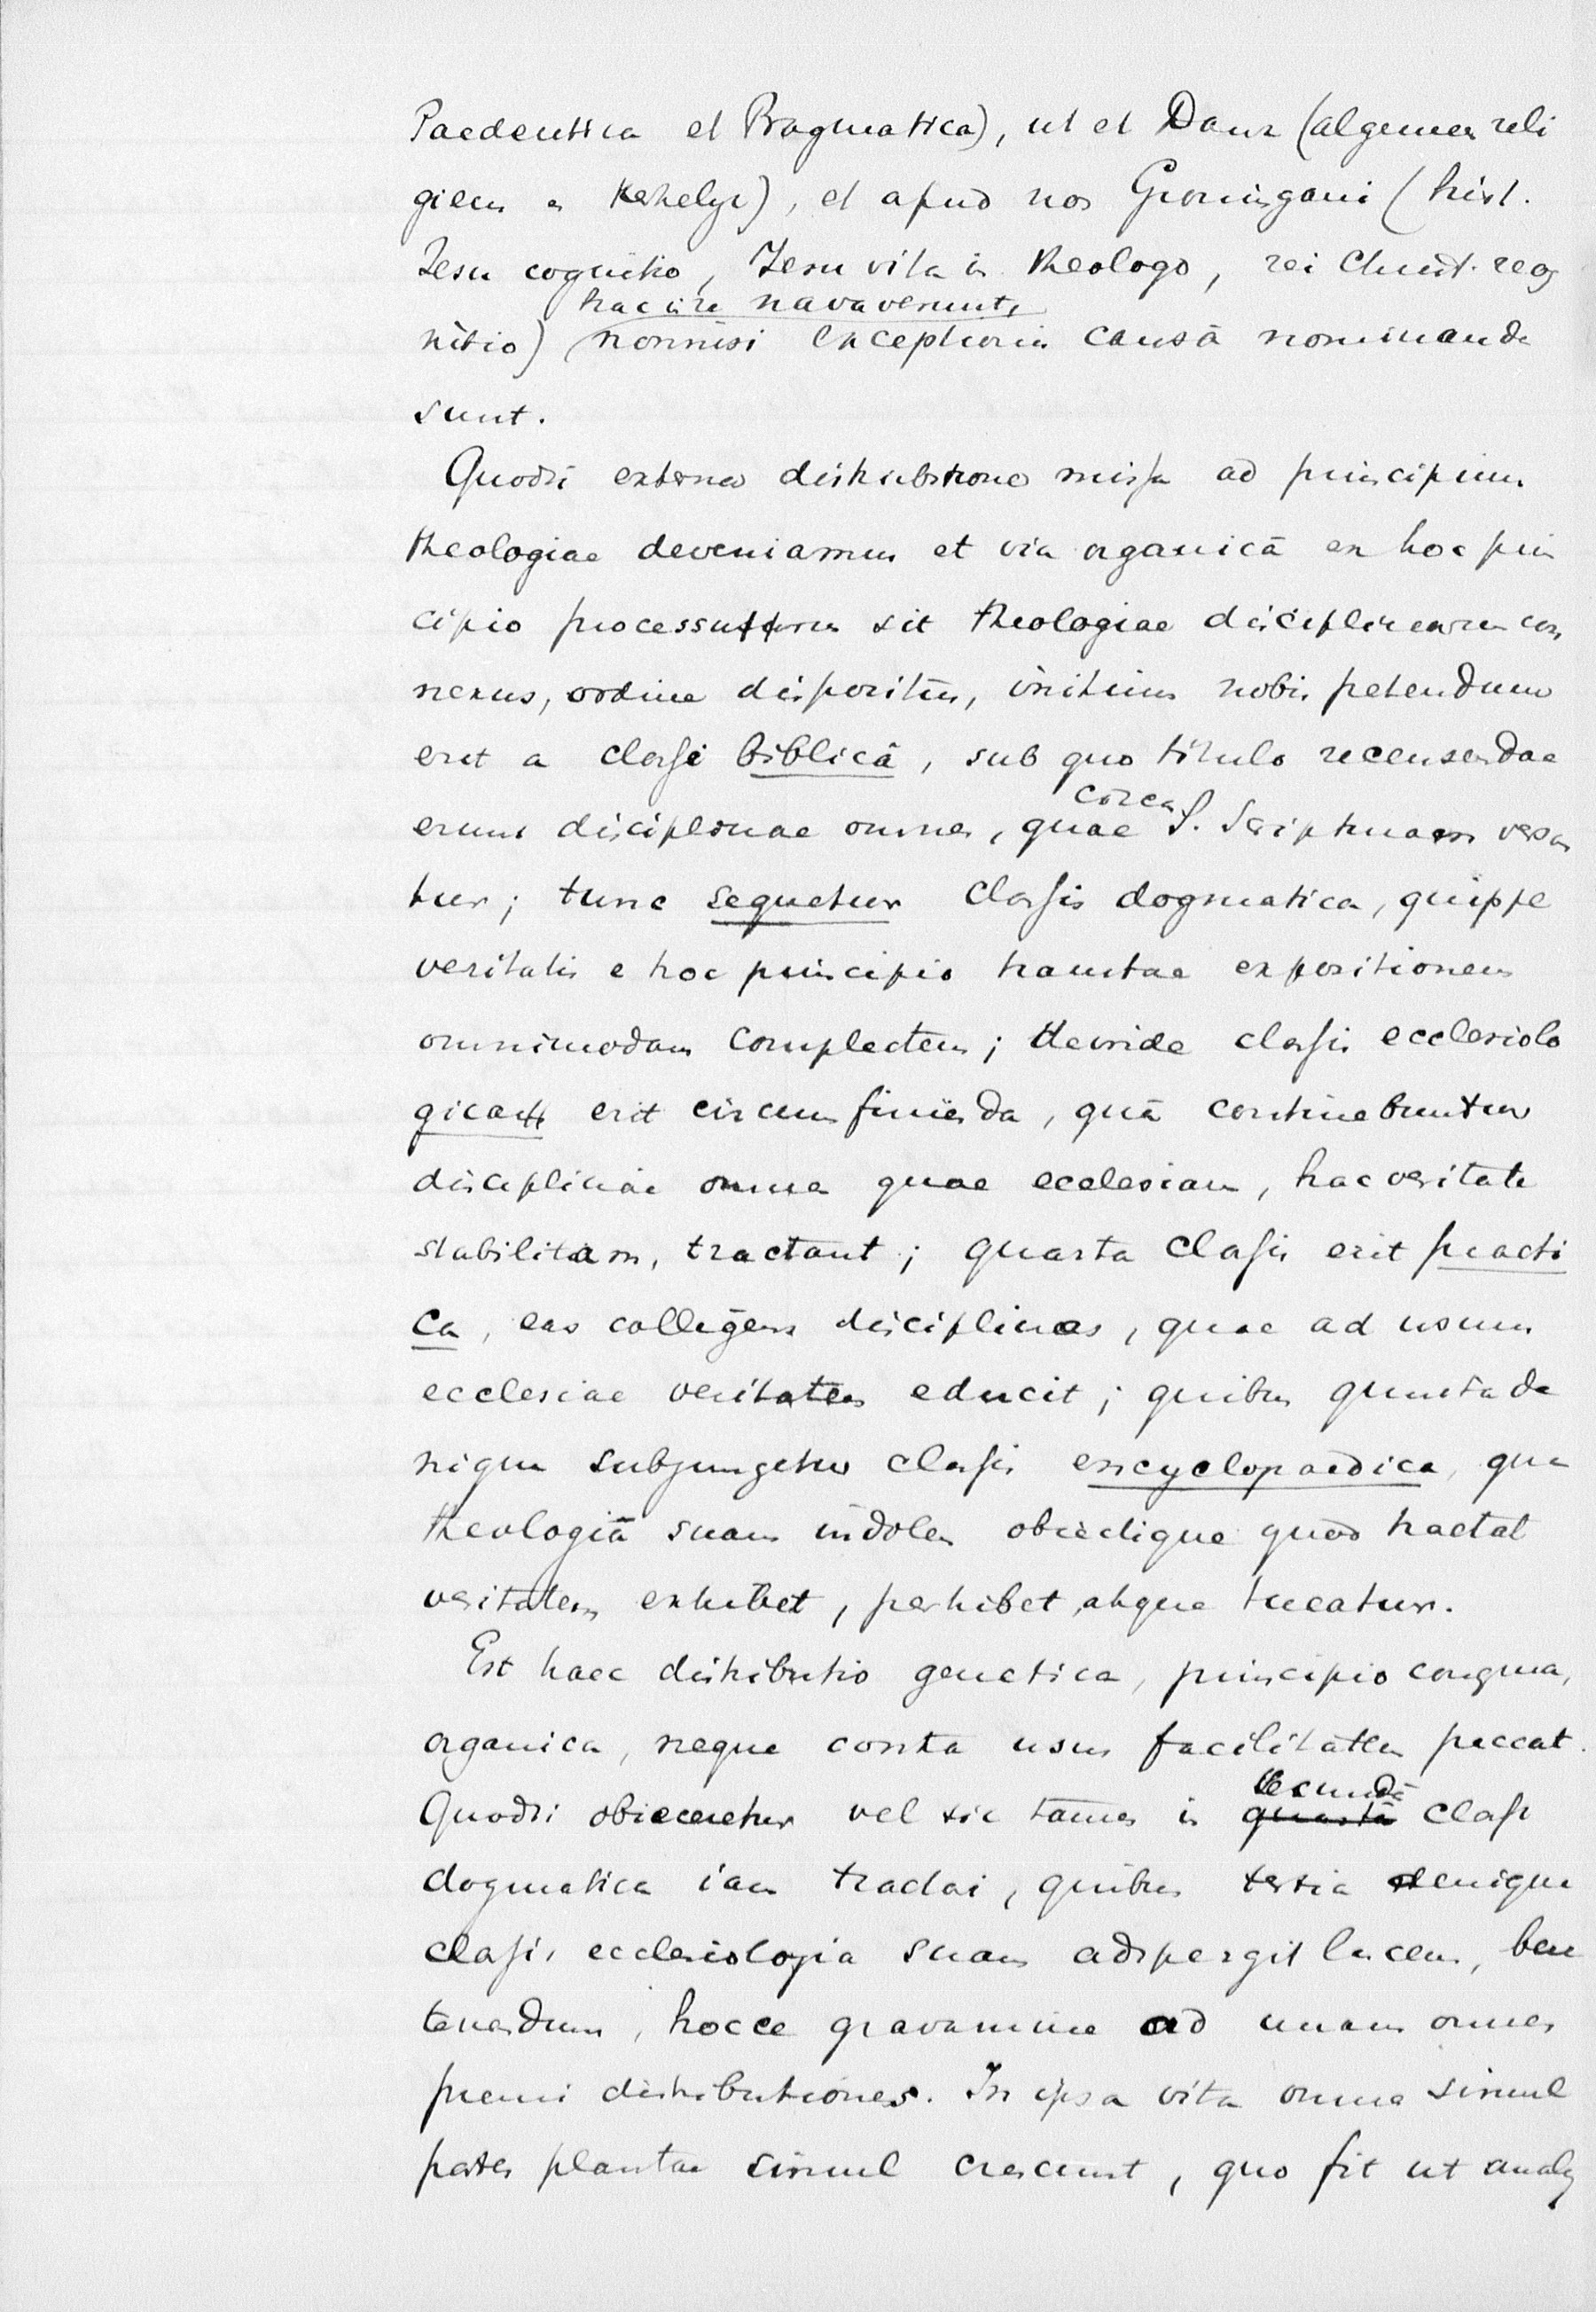 Paedeutica et Pragmatica), ut et Danz (algemeen reli
gieus en kerkelyk), et apud nos Groningani (hist.
Iesu cognitio, Iesu vita in theologo, rei Christ. cog
hac in re navaverunt,
nitio) nonnisi exceptionis causâ nominande
sunt.
Quodsi externa distributione missa ad principium
theologiae deveniamus et via organicâ ex hoc prin
cipio processurus sit theologiae disciplinarum con
nexus, ordine dispositus, initium nobis petendum
erit a classe biblicâ, sub quo titulo recensendae
circa
erunt disciplinae omnes, quae S. Scripturam versan
tur; tunc sequetur classis dogmatica, quippe
veritatis e hoc principio haustae expositionem
omnimodam complectens; deinde classis ecclesiolo
gica erit circumfinienda, quâ continebuntur
disciplinae omnes quae ecclesiam, hac veritate
stabilitam, tractant; quarta classis erit practi
ca, eas colligens disciplinas, quae ad usum
ecclesiae veritatem educit; quibus quinta de
nique subjungetur classis encyclopaedica, qua
theologiâ suam indolem obiectique quod tractat
veritatem exhibet, perhibet, atque tueatur.
Est haec distributio genetica, principio congrua,
organica, neque contra usus facilitatem peccat.
secundâ
Quodsi obiiceretur vel sic tamen in quartâ classe
dogmatica iam tractari, quibus tertia denique
classis ecclesiologia suam adspergit lucem, bene
tenendum, hocce gravamine ad unam omnes
premi distributiones. In ipsa vita omnes simul
partes plantae simul crescunt, quo fit ut analy